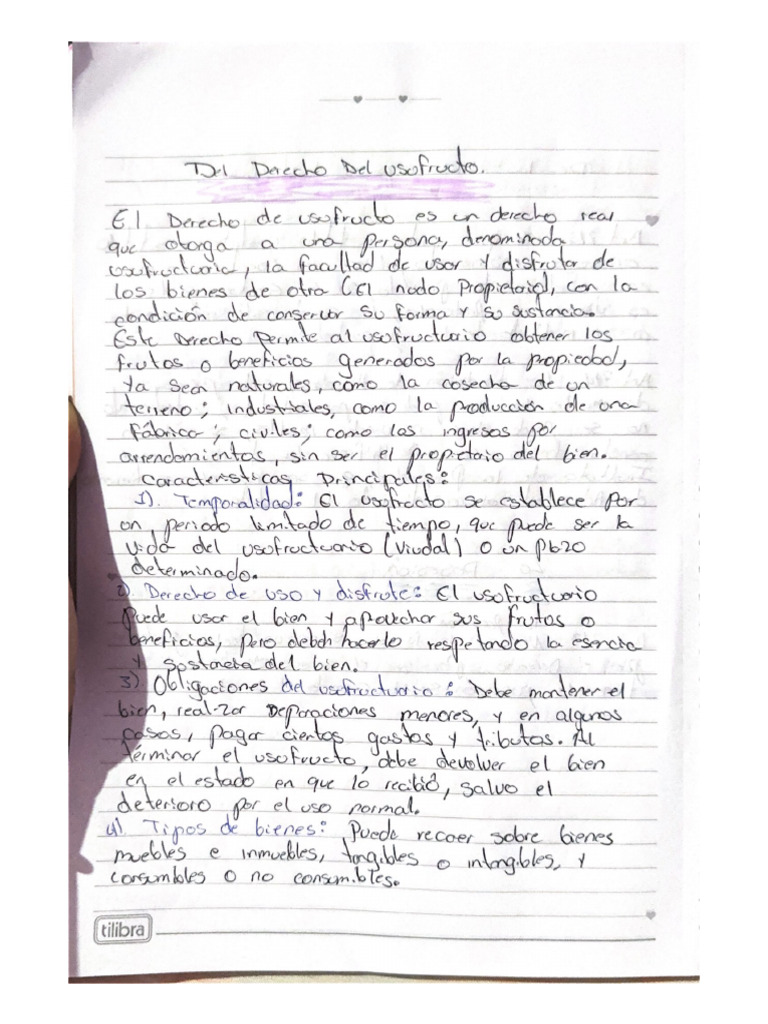 Del Derecho Del usofructo.
El Derecho de usofructo es un derecho real
que otorga a una persona, denominada
usufructuaria, la facultad de usar y disfrutar de
los bienes de otra (El nudo Propietario), con la
condición de conservar su forma y su sustancia.
Este Derecho permite al usofructuario obtener los
frutos o beneficios generados por la propiedad,
ya sean naturales, como la cosecha de un
terreno; industriales, como la producción de una
fábrica; civiles; como los ingresos por
arrendamientos, sin ser el propietario del bien.
Características Principales:
1). Temporalidad: El usofructo se establece por
un periodo limitado de tiempo, que puede ser la
vida del usofructuario (Viudal) o un plazo
determinado.
2). Derecho de uso y disfrute: El usofructuario
Puede usar el bien y aprovechar sus frutos o
beneficios, pero debe hacerlo respetando la esencia
y sustancia del bien.
3). Obligaciones del usofructuario: Debe mantener el
bien, realizar Reparaciones menores, y en algunos
casos, pagar ciertos gastos y tributos. Al
términar el usofructo, debe devolver el bien
en el estado en que lo recibió, salvo el
deterioro por el uso normal.
4). Tipos de bienes: Puede recaer sobre bienes
muebles e inmuebles, tangibles o intangibles, y
consumibles o no consumibles.
tilibra